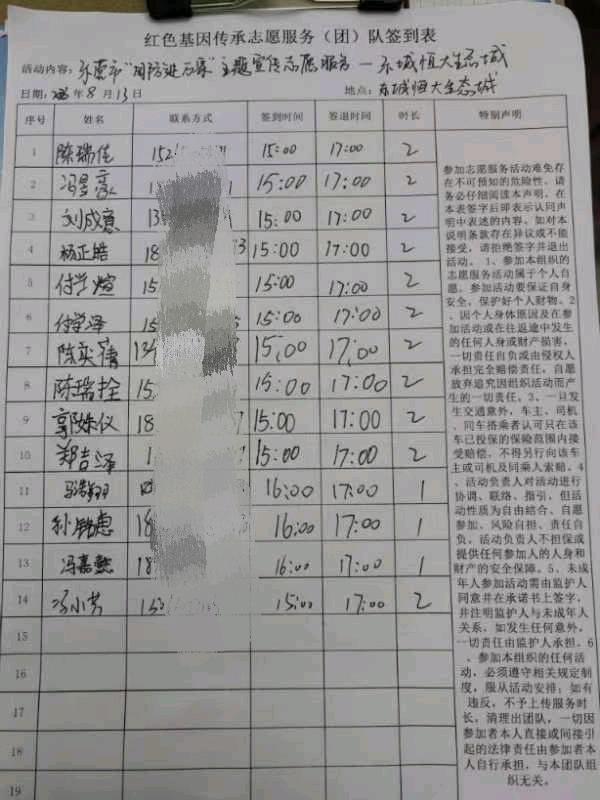 红色基因传承志愿服务（团）队签到表
活动内容：东莞市“国防进万家”主题宣传志愿服务—东城恒大生态城
日期： 年8月13日 地点：东城恒大生态城
序号 姓名 联系方式 签到时间 签退时间 时长 特别声明
1 陈瑞佳 152 15:00 17:00 2
2 冯昱豪 1 15:00 17:00 2
3 刘成 13 15:00 17:00 2
4 杨正皓 18 3 15:00 17:00 2
5 付学煊 15 15:00 17:00 2
6 付学泽 15 15:00 17:00 2
7 陈奕蒨 134 15:00 17:00 2
8 陈瑞拴 15 15:00 17:00 2
9 郭姝仪 18 7 15:00 17:00 2
10 郑吉泽 1 15:00 17:00 2
11 16:00 17:00 1
12 孙铭惠 18 16:00 17:00 1
13 冯嘉懿 18 16:00 17:00 1
14 冯小芳 15:00 17:00 2
15
16
17
18
19
参加志愿服务活动难免存
在不可预知的危险性，请
务必仔细阅读本声明。在
本表签字后即表示认同声
明中表述的内容。如对本
说明条款存在异议或不能
接受，请拒绝签字并退出
活动。1、参加本组织的
志愿服务活动属于个人自
愿。参加活动要保证自身
安全，保护好个人财物。2
、因个人身体原因及在参
加活动或在往返途中发生
的任何人身或财产损害，
一切责任自负或由侵权人
承担完全赔偿责任，自愿
放弃追究因组织活动而产
生的一切责任。3、一旦发
生交通意外，车主、司机
、同车搭乘者认可只在该
车已投保的保险范围内接
受赔偿，不得另行向该车
主或司机及同乘人索赔。4
、活动负责人对活动进行
协调、联络、指引，但活
动性质为自由结合、自愿
参加、风险自担、责任自
负，活动负责人不担保或
提供任何参加人的人身和
财产的安全保障。5、未成
年人参加活动需由监护人
同意并在承诺书上签字，
并注明监护人与未成年人
关系，如发生任何意外，
一切责任由监护人承担。6
、参加本组织的任何活
动，必须遵守相关规定制
度，服从活动安排；如有
违反，不予上传服务时
长，清理出团队，一切因
参加者本人直接或间接引
起的法律责任由参加者本
人自行承担，与本团队组
织无关。